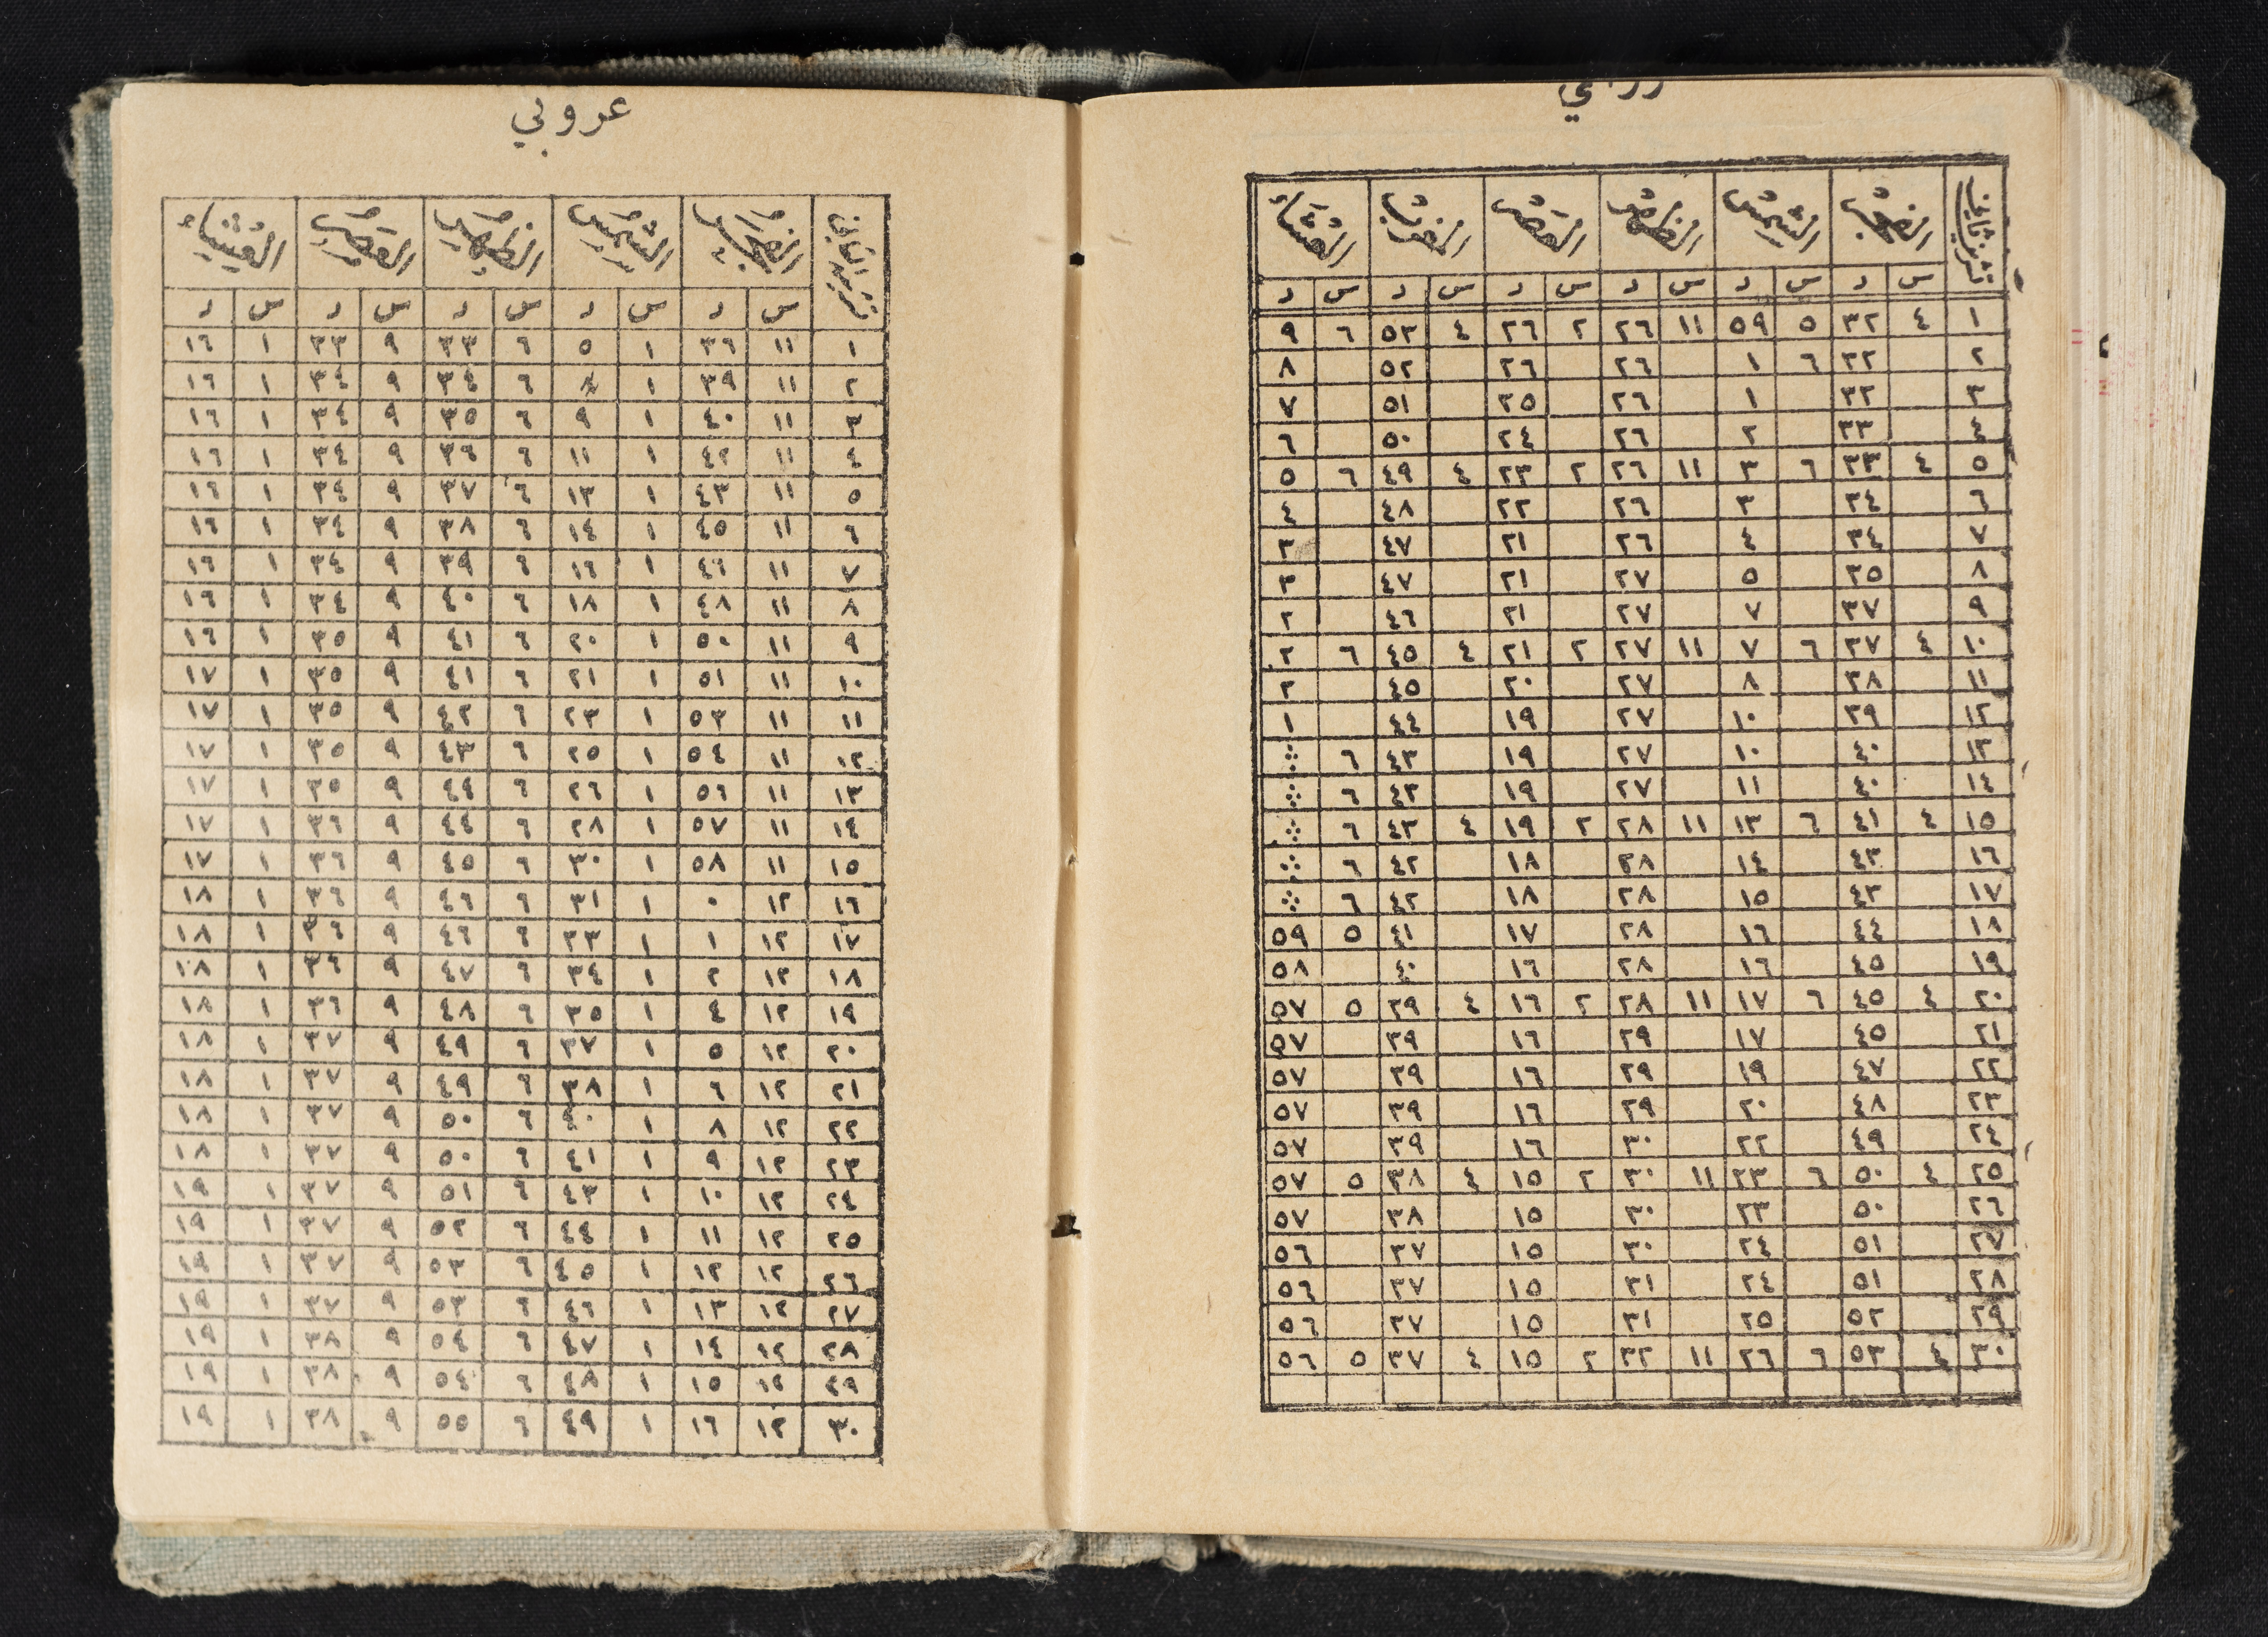 تشرين ثاني الفجر الشمس الظهر العصر المغرب العشاء
س د س د س د س د س د س د
١ ٤ ٣٢ ٥ ٥٩ ١١ ٢٦ ٢ ٢٦ ٤ ٥٣ ٦ ٩
٢ ٣٢ ٦ ١ ٢٦ ٢٦ ٥٢ ٨
٣ ٣٢ ١ ٢٦ ٢٥ ٥١ ٧
٤ ٣٣ ٢ ٢٦ ٢٤ ٥٠ ٦
٥ ٤ ٣٣ ٦ ٣ ١١ ٢٦ ٢ ٢٣ ٤ ٤٩ ٦ ٥
٦ ٣٤ ٣ ٢٦ ٢٢ ٤٨ ٤
٧ ٣٤ ٤ ٢٦ ٢١ ٤٧ ٣
٨ ٣٥ ٥ ٢٧ ٢١ ٤٧ ٣
٩ ٣٧ ٧ ٢٧ ٢١ ٤٦ ٢
١٠ ٤ ٣٧ ٦ ٧ ١١ ٢٧ ٢ ٢١ ٤ ٤٥ ٦ ٢
١١ ٣٨ ٨ ٢٧ ٢٠ ٤٥ ٢
١٢ ٣٩ ١٠ ٢٧ ١٩ ٤٤ ١
١٣ ٤٠ ١٠ ٢٧ ١٩ ٤٣ ٦ ⁘
١٤ ٤٠ ١١ ٢٧ ١٩ ٤٣ ٦ ⁘
١٥ ٤ ٤١ ٦ ١٣ ١١ ٢٨ ٢ ١٩ ٤ ٤٣ ٦ ⁘
١٦ ٤٣ ١٤ ٢٨ ١٨ ٤٢ ٦ ⁘
١٧ ٤٣ ١٥ ٢٨ ١٨ ٤٢ ٦ ⁘
١٨ ٤٤ ١٦ ٢٨ ١٧ ٤١ ٥ ٥٩
١٩ ٤٥ ١٦ ٢٨ ١٦ ٤٠ ٥٨
٢٠ ٤ ٤٥ ٦ ١٧ ١١ ٢٨ ٢ ١٦ ٤ ٣٩ ٥ ٥٧
٢١ ٤٥ ١٧ ٢٩ ١٦ ٣٩ ٥٧
٢٢ ٤٧ ١٩ ٢٩ ١٦ ٣٩ ٥٧
٢٣ ٤٨ ٢٠ ٢٩ ١٦ ٣٩ ٥٧
٢٤ ٤٩ ٢٢ ٣٠ ١٦ ٣٩ ٥٧
٢٥ ٤ ٥٠ ٦ ٢٣ ١١ ٣٠ ٢ ١٥ ٤ ٣٨ ٥ ٥٧
٢٦ ٥٠ ٢٣ ٣٠ ١٥ ٣٨ ٥٧
٢٧ ٥١ ٢٤ ٣٠ ١٥ ٣٧ ٥٦
٢٨ ٥١ ٢٤ ٣١ ١٥ ٣٧ ٥٦
٢٩ ٥٢ ٢٥ ٣١ ١٥ ٣٧ ٥٦
٣٠ ٤ ٥٣ ٦ ٢٦ ١١ ٣٢ ٢ ١٥ ٤ ٣٧ ٥ ٥٦
عروبي
تشرين الثاني الفجر الشمس الظهر العصر العشاء
س د س د س د س د س د
١ ١١ ٣٦ ١ ٥ ٦ ٣٣ ٩ ٣٣ ١ ١٦
٢ ١١ ٣٩ ١ ٦ ٣٤ ٩ ٣٤ ١ ١٦
٣ ١١ ٤٠ ١ ٩ ٦ ٣٥ ٩ ٣٤ ١ ١٦
٤ ١١ ٤٢ ١ ١١ ٦ ٣٦ ٩ ٣٤ ١ ١٦
٥ ١١ ٤٣ ١ ١٣ ٦ ٣٧ ٩ ٣٤ ١ ١٦
٦ ١١ ٤٥ ١ ١٤ ٦ ٣٨ ٩ ٣٤ ١ ١٦
٧ ١١ ٤٦ ١ ١٦ ٦ ٣٩ ٩ ٣٤ ١ ١٦
٨ ١١ ٤٨ ١ ١٨ ٦ ٤٠ ٩ ٣٤ ١ ١٦
٩ ١١ ٥٠ ١ ٢٠ ٦ ٤١ ٩ ٣٥ ١ ١٦
١٠ ١١ ٥١ ١ ٢١ ٦ ٤١ ٩ ٣٥ ١ ١٧
١١ ١١ ٥٣ ١ ٢٣ ٦ ٤٢ ٩ ٣٥ ١ ١٧
١٢ ١١ ٥٤ ١ ٢٥ ٦ ٤٣ ٩ ٣٥ ١ ١٧
١٣ ١١ ٥٦ ١ ٢٦ ٦ ٤٤ ٩ ٣٥ ١ ١٧
١٤ ١١ ٥٧ ١ ٢٨ ٦ ٤٤ ٩ ٣٦ ١ ١٧
١٥ ١١ ٥٨ ١ ٣٠ ٦ ٤٥ ٩ ٣٦ ١ ١٧
١٦ ١٢ ٠ ١ ٣١ ٦ ٤٦ ٩ ٣٦ ١ ١٨
١٧ ١٢ ١ ١ ٣٣ ٦ ٤٦ ٩ ٣٦ ١ ١٨
١٨ ١٢ ٢ ١ ٣٤ ٦ ٤٧ ٩ ٣٦ ١ ١٨
١٩ ١٢ ٤ ١ ٣٥ ٦ ٤٨ ٩ ٣٦ ١ ١٨
٢٠ ١٢ ٥ ١ ٣٧ ٦ ٤٩ ٩ ٣٧ ١ ١٨
٢١ ١٢ ٦ ١ ٣٨ ٦ ٤٩ ٩ ٣٧ ١ ١٨
٢٢ ١٢ ٨ ١ ٤٠ ٦ ٥٠ ٩ ٣٧ ١ ١٨
٢٣ ١٢ ٩ ١ ٤١ ٦ ٥٠ ٩ ٣٧ ١ ١٨
٢٤ ١٢ ١٠ ١ ٤٣ ٦ ٥١ ٩ ٣٧ ١ ١٩
٢٥ ١٢ ١١ ١ ٤٤ ٦ ٥٢ ٩ ٣٧ ١ ١٩
٢٦ ١٢ ١٢ ١ ٤٥ ٦ ٥٣ ٩ ٣٧ ١ ١٩
٢٧ ١٢ ١٣ ١ ٤٦ ٦ ٥٣ ٩ ٣٧ ١ ١٩
٢٨ ١٢ ١٤ ١ ٤٧ ٦ ٥٤ ٩ ٣٨ ١ ١٩
٢٩ ١٢ ١٥ ١ ٤٨ ٦ ٥٤ ٩ ٣٨ ١ ١٩
٣٠ ١٢ ١٦ ١ ٤٩ ٦ ٥٥ ٩ ٣٨ ١ ١٩